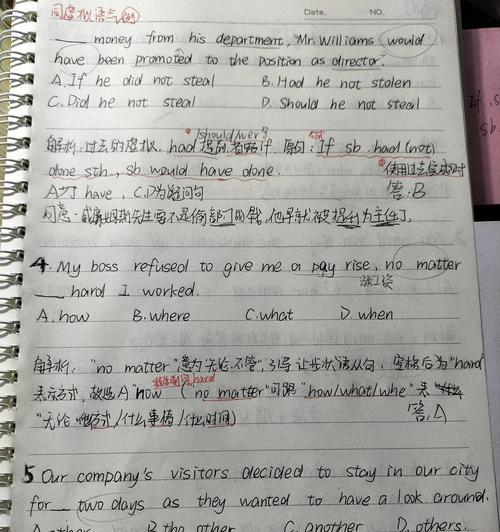 同虚拟语气(例)
Date. NO.
___ money from his department, Mr. Williams would
have been promoted to the position as director.
A. If he did not steal B. Had he not stolen
C. Did he not steal D. Should he not steal
should/were
解析:过去的虚拟, had 提前,省略if. 原句: If sb had (not)
done sth, sb would have done. ②使用过去完成时
A少了 have, C,D为疑问句 答:B
同意:威廉姆斯先生要不是偷部门的钱,他早就被提升为主任了.
4. My boss refused to give me a pay rise, no matter
涨工资
___ hard I worked.
A. how B. where C. what D. when
解析: "no matter"意为"无论,不管",引导让步状语从句, 空格后为"hard
hard
表示方式, 故选A "how ( no matter"可跟 "how/what/whe" 表
"无论 方式/什么事情/什么时间) 答:A
5 Our company's visitors decided to stay in our city
for ___ two days as they wanted to have a look around.
A. other B. the other C. another D. others.